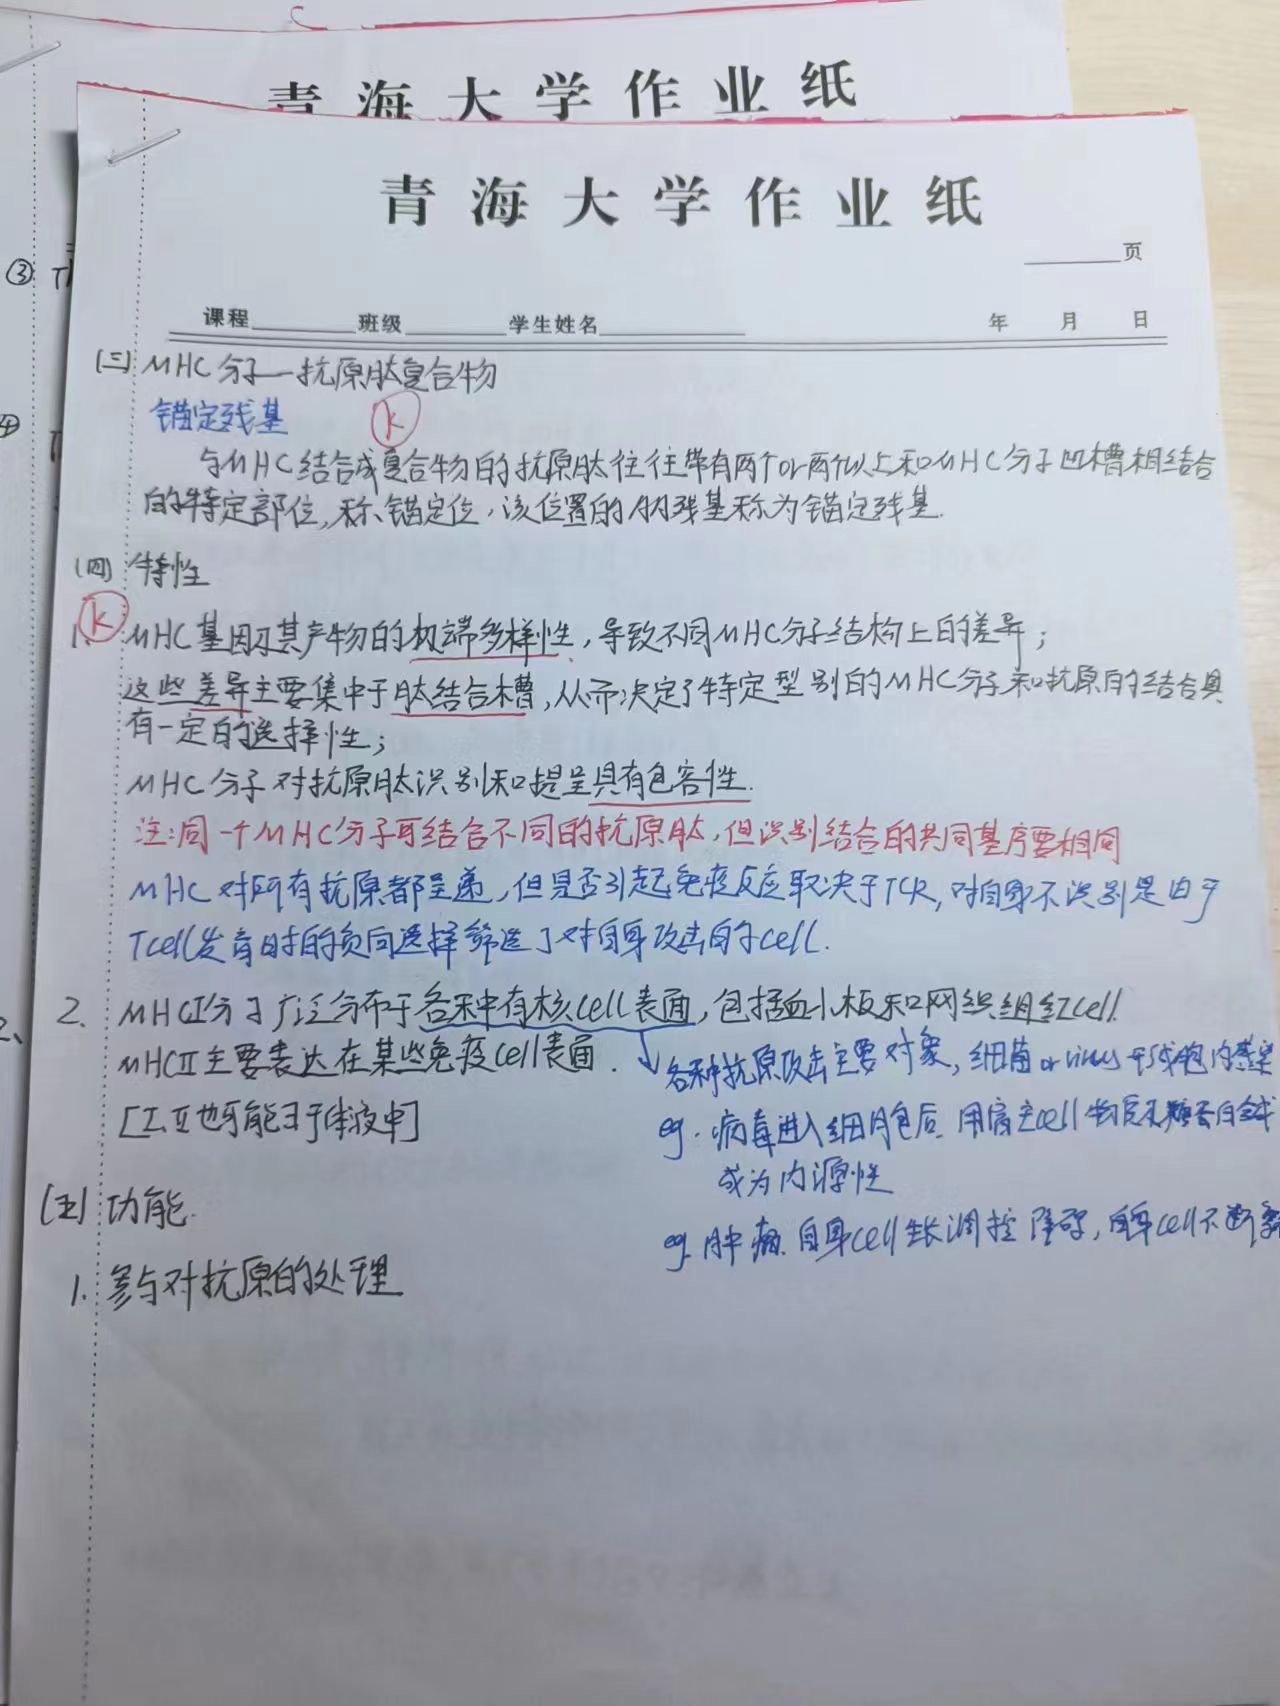 青海大学作业纸
青海大学作业纸
页
课程 班级 学生姓名 年 月 日
③
④
(三) MHC分子—抗原肽复合物
锚定残基 K
与MHC结合成复合物的抗原肽往往带有两个or两个以上和MHC分子凹槽相结合
的特定部位,称锚定位,该位置的AA残基称为锚定残基.
(四) 特性
K
1. MHC基因及其产物的极端多样性,导致不同MHC分子结构上的差异;
这些差异主要集中于肽结合槽,从而决定了特定型别的MHC分子和抗原的结合具
有一定的选择性;
MHC分子对抗原肽识别和提呈具有包容性.
注:同一个MHC分子可结合不同的抗原肽,但识别结合的共同基序要相同
MHC对所有抗原都呈递,但是否引起免疫反应取决于TCR,对自身不识别是由于
Tcell发育时的负向选择筛选了对自身攻击的cell.
2. MHCI分子广泛分布于各种有核cell表面,包括血小板和网织组红cell.
MHCII主要表达在某些免疫cell表面.
各种抗原攻击主要对象,细菌or virus 细胞内感染
[I、II也可能ヨ于体液中]
eg.病毒进入细胞后,用宿主cell物质和糖蛋白合成
成为内源性
(五) 功能.
eg.肿瘤.自身cell生长调控障碍,自身cell不断
1. 参与对抗原的处理